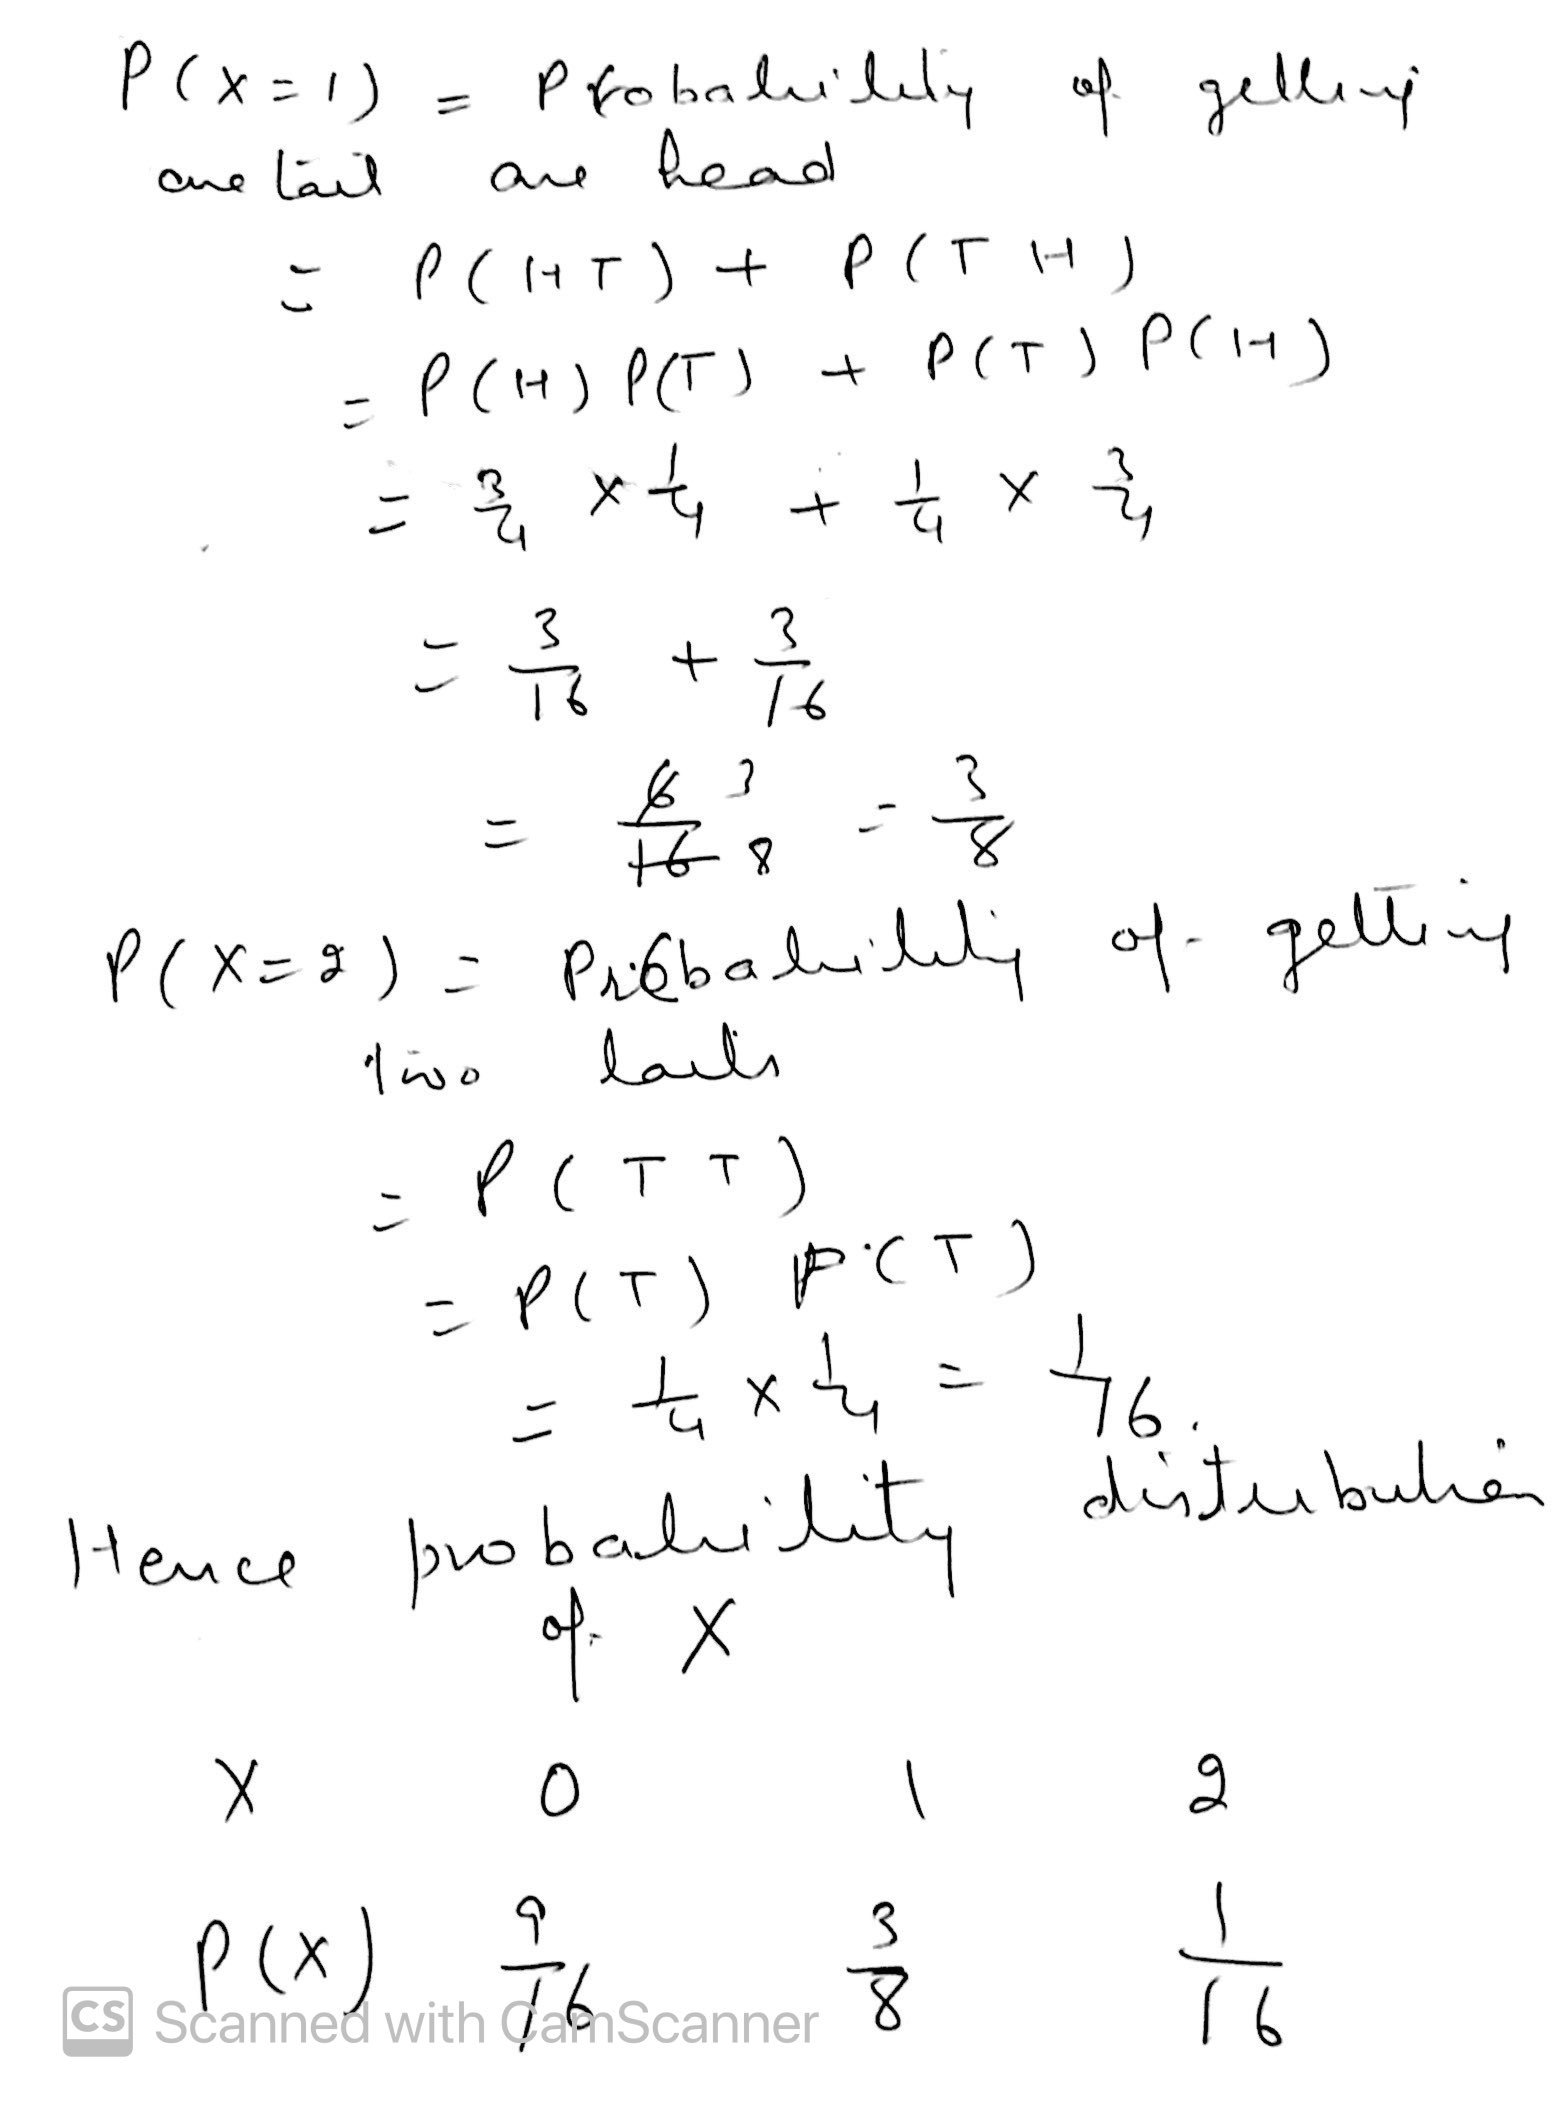 P(X=1) = Probability of getting
one tail one head
= P(HT) + P(TH)
= P(H) P(T) + P(T) P(H)
= 3/4 × 1/4 + 1/4 × 3/4
= 3/16 + 3/16
= 6/16 3/8 = 3/8
P(X=2) = Probability of getting
two tails
= P(TT)
= P(T) P(T)
= 1/4 × 1/4 = 1/16.
Hence probability distribution
of X
X 0 1 2
P(X) 9/16 3/8 1/16
CS Scanned with CamScanner